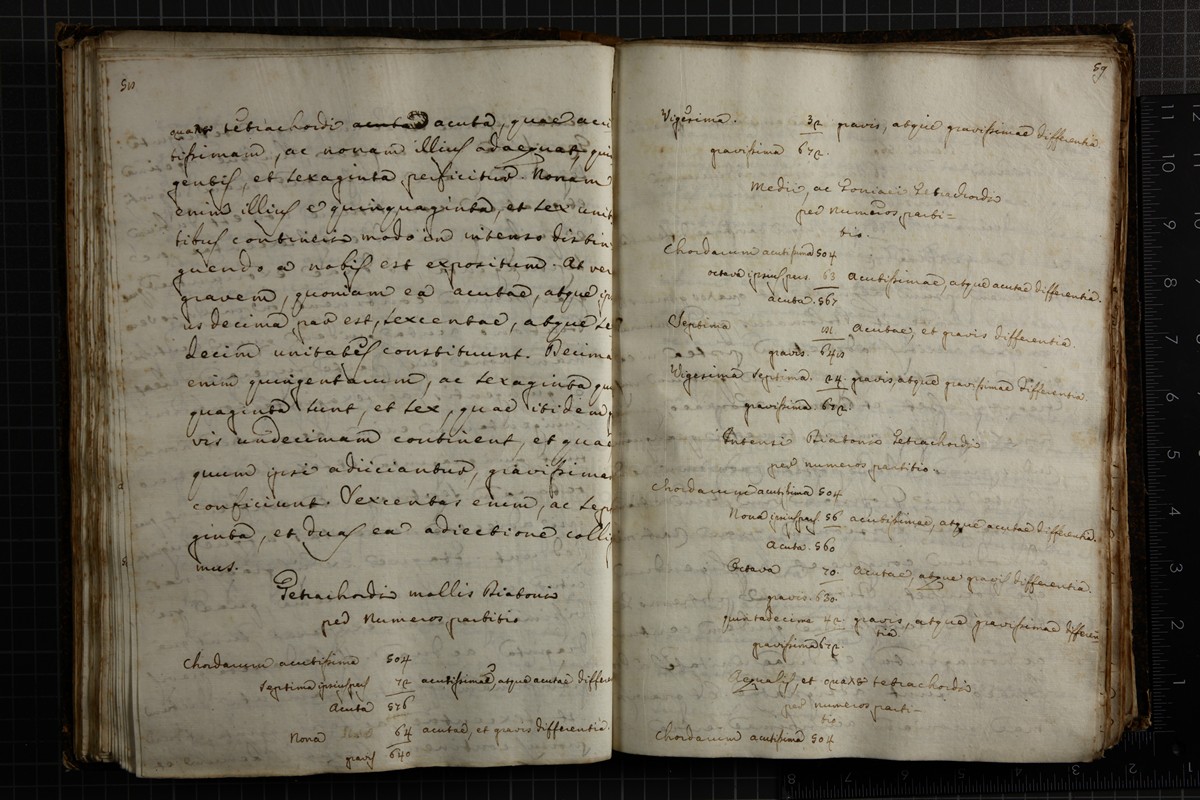 58
quare tetrachordi acuta, quae acu
tissimam, ac nonam illius adaequat, quin
gentis, et sexaginta perficitur. Nonam
enim illius e quinquaginta, et sex unit
tibus contineri modo in intenso distin
guendo a nobis est expositum. At ver
gravem, quoniam ea acutae, atque ip
us decima par est, sexcentae, atque se
decim unitates constituunt. Decima
enim quingentarum, ac sexaginta qu
quaginta sunt, et sex, quae itidem
vis undecimam continent, et quae
quum ipsi adiiciantur, gravissimam
conficiunt. Sexcentas enim, ac sept
ginta, et duas ea adiectione colli
mus.
Tetrachordi mollis Diatoni
per Numeros partitio
Chordarum acutissima 504
septima ipsius pars 72 acutissimae, atque acutae differen
Acuta 576
Nona 64 acutae, et gravis differentia.
gravis 640
59
Vigesima. 32 gravis, atque gravissimae differentia
gravissima 672.
Medii, ac Toniaci Tetrachordi
per Numeros parti=
tio.
Chordarum acutissima 504
octava ipsius pars 63 Acutissimae, atque acutae differentia.
acuta. 567
Septima 81 Acutae, et gravis differentia.
gravis. 648
Vigesima septima. 24 gravis, atque gravissimae differentia
gravissima. 672.
Intensi Diatoni Tetrachordi
per numeros partitio.
Chordarum acutissima 504
Nona ipsius pars 56 acutissimae, atque acutae differentia.
Acuta. 560
Octava 70. Acutae, atque gravis differentia.
gravis. 630.
quintadecima 42 gravis, atque gravissimae differen
tia
gravissima 672.
Aequalis, et quare tetrachordi
per numeros parti=
tio.
Chordarum acutissima 504